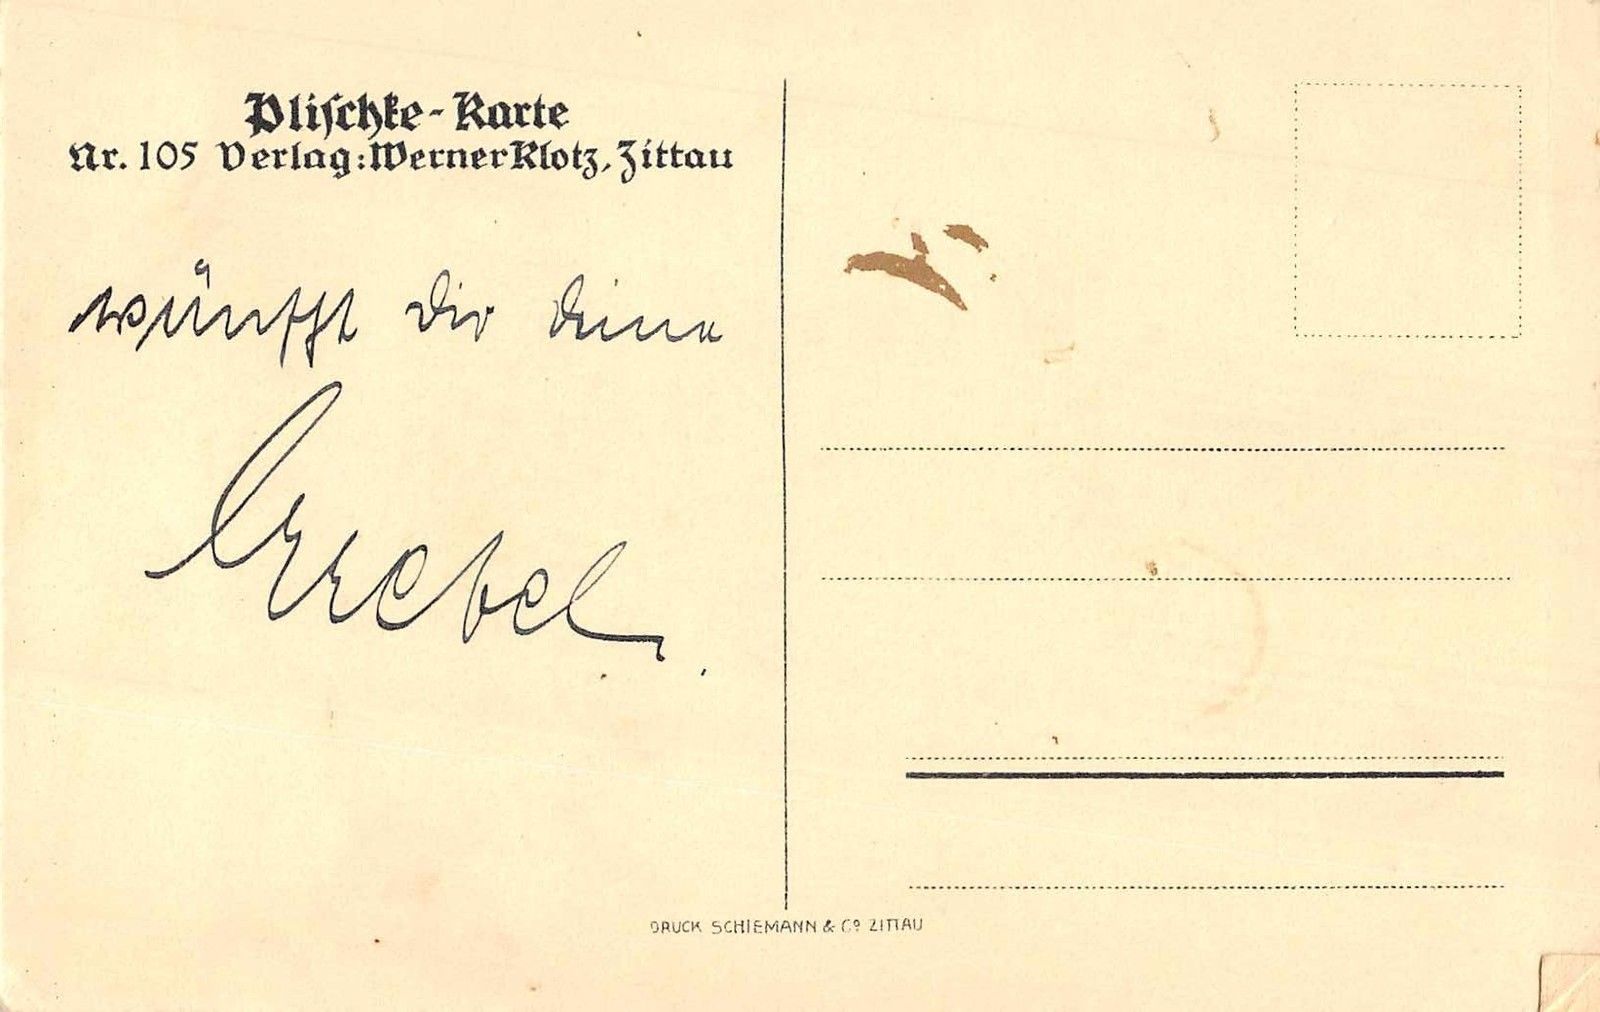 Plischke-Karte
Nr. 105 Verlag: Werner Klotz, Zittau
wünscht Dir Deine
DRUCK SCHIEMANN & Co ZITTAU